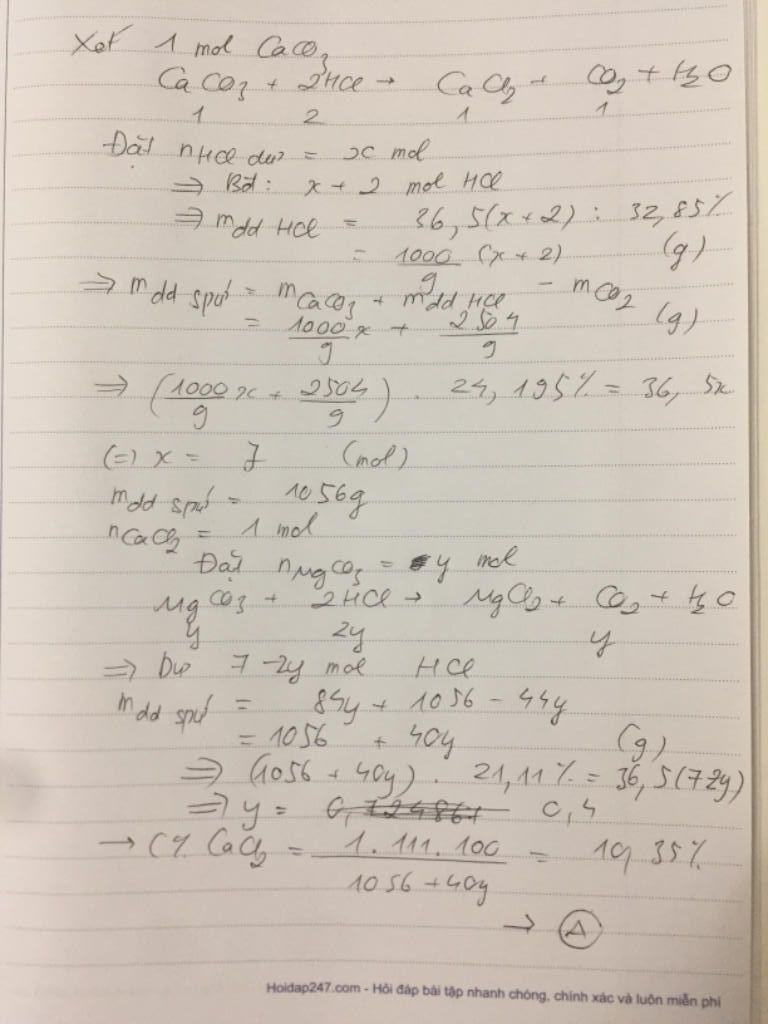 Xét 1 mol CaCO3
CaCO3 + 2HCl → CaCl2 + CO2 + H2O
1 2 1 1
Đặt nHCl dư = x mol
⇒ Bđ: x + 2 mol HCl
⇒ mdd HCl = 36,5(x+2) : 32,85%
= 1000/9 (x+2) (g)
⇒ mdd spứ = mCaCO3 + mdd HCl - mCO2
= 1000/9 x + 2504/9 (g)
⇒ (1000/9 x + 2504/9) . 24,195% = 36,5x
(=) x = 7 (mol)
mdd spứ = 1056g
nCaCl2 = 1 mol
Đặt nMgCO3 = y mol
MgCO3 + 2HCl → MgCl2 + CO2 + H2O
y 2y y
⇒ Dư 7-2y mol HCl
mdd spứ = 84y + 1056 - 44y
= 1056 + 40y (g)
⇒ (1056 + 40y) . 21,11% = 36,5(7-2y)
⇒ y = 0,4
→ C% CaCl2 = 1.111.100/1056+40y = 10,35%
→ A
Hoidap247.com - Hỏi đáp bài tập nhanh chóng, chính xác và luôn miễn phí